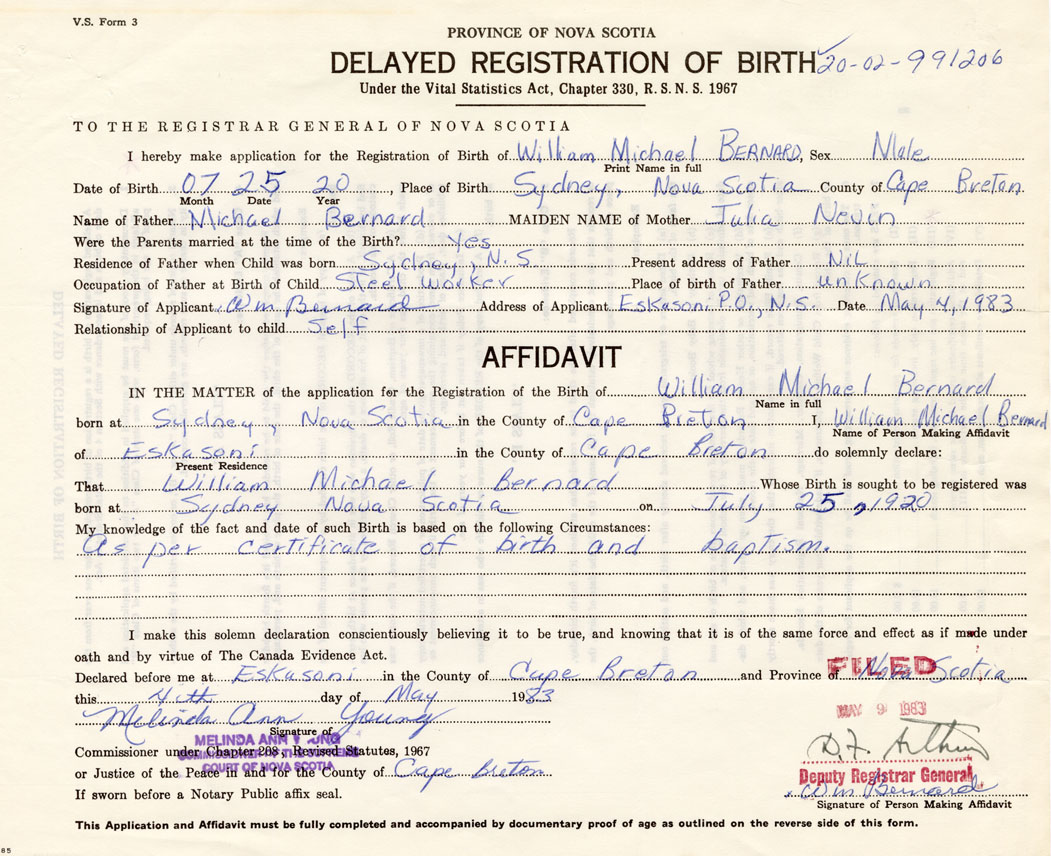 V.S. Form 3
PROVINCE OF NOVA SCOTIA
DELAYED REGISTRATION OF BIRTH 20-02-991206
Under the Vital Statistics Act, Chapter 330, R. S. N. S. 1967
TO THE REGISTRAR GENERAL OF NOVA SCOTIA
I hereby make application for the Registration of Birth of William Michael BERNARD, Sex Male
Print Name in full
Date of Birth 07 25 20, Place of Birth Sydney, Nova Scotia County of Cape Breton
Month Date Year
Name of Father Michael Bernard MAIDEN NAME of Mother Julia Nevin
Were the Parents married at the time of the Birth? Yes
Residence of Father when Child was born Sydney, N.S. Present address of Father NIL
Occupation of Father at Birth of Child Steel Worker Place of birth of Father unknown
Signature of Applicant Wm Bernard Address of Applicant Eskasoni P.O., N.S. Date May 4, 1983
Relationship of Applicant to child Self
AFFIDAVIT
IN THE MATTER of the application for the Registration of the Birth of William Michael Bernard
Name in full
born at Sydney, Nova Scotia in the County of Cape Breton I, William Michael Bernard
Name of Person Making Affidavit
of Eskasoni in the County of Cape Breton do solemnly declare:
Present Residence
That William Michael Bernard Whose Birth is sought to be registered was
born at Sydney Nova Scotia on July 25, 1920
My knowledge of the fact and date of such Birth is based on the following Circumstances:
As per certificate of birth and baptism.
I make this solemn declaration conscientiously believing it to be true, and knowing that it is of the same force and effect as if made under
oath and by virtue of The Canada Evidence Act.
Declared before me at Eskasoni in the County of Cape Breton and Province of Nova Scotia
FILED
this 4th day of May 1983
MAY 9 1983
Melinda Ann Young
Signature of
MELINDA ANN YOUNG
D.F. Arthur
Commissioner under Chapter 208, Revised Statutes, 1967
COURT OF NOVA SCOTIA
or Justice of the Peace in and for the County of Cape Breton
Deputy Registrar General
Wm Bernard
If sworn before a Notary Public affix seal.
Signature of Person Making Affidavit
This Application and Affidavit must be fully completed and accompanied by documentary proof of age as outlined on the reverse side of this form.
85